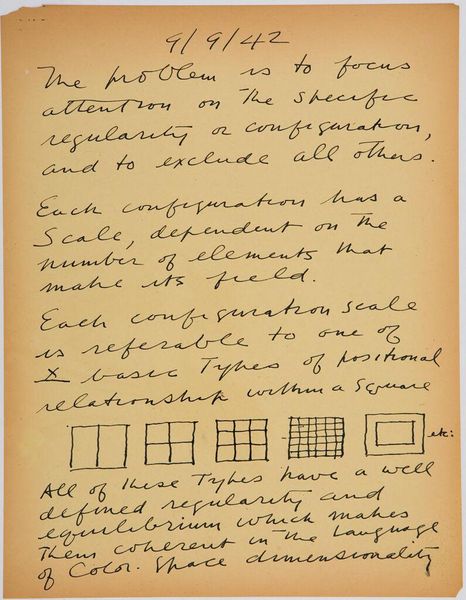 9/9/42
The problem is to focus
attention on the specific
regularity or configuration,
and to exclude all others.
Each configuration has a
Scale, dependent on the
number of elements that
make its field.
Each configuration scale
is referable to one of
X basic Types of positional
relationship within a Square
etc:
All of these Types have a well
defined regularity and
equilibrium which makes
them coherent in the Language
of Color-Space dimensionality